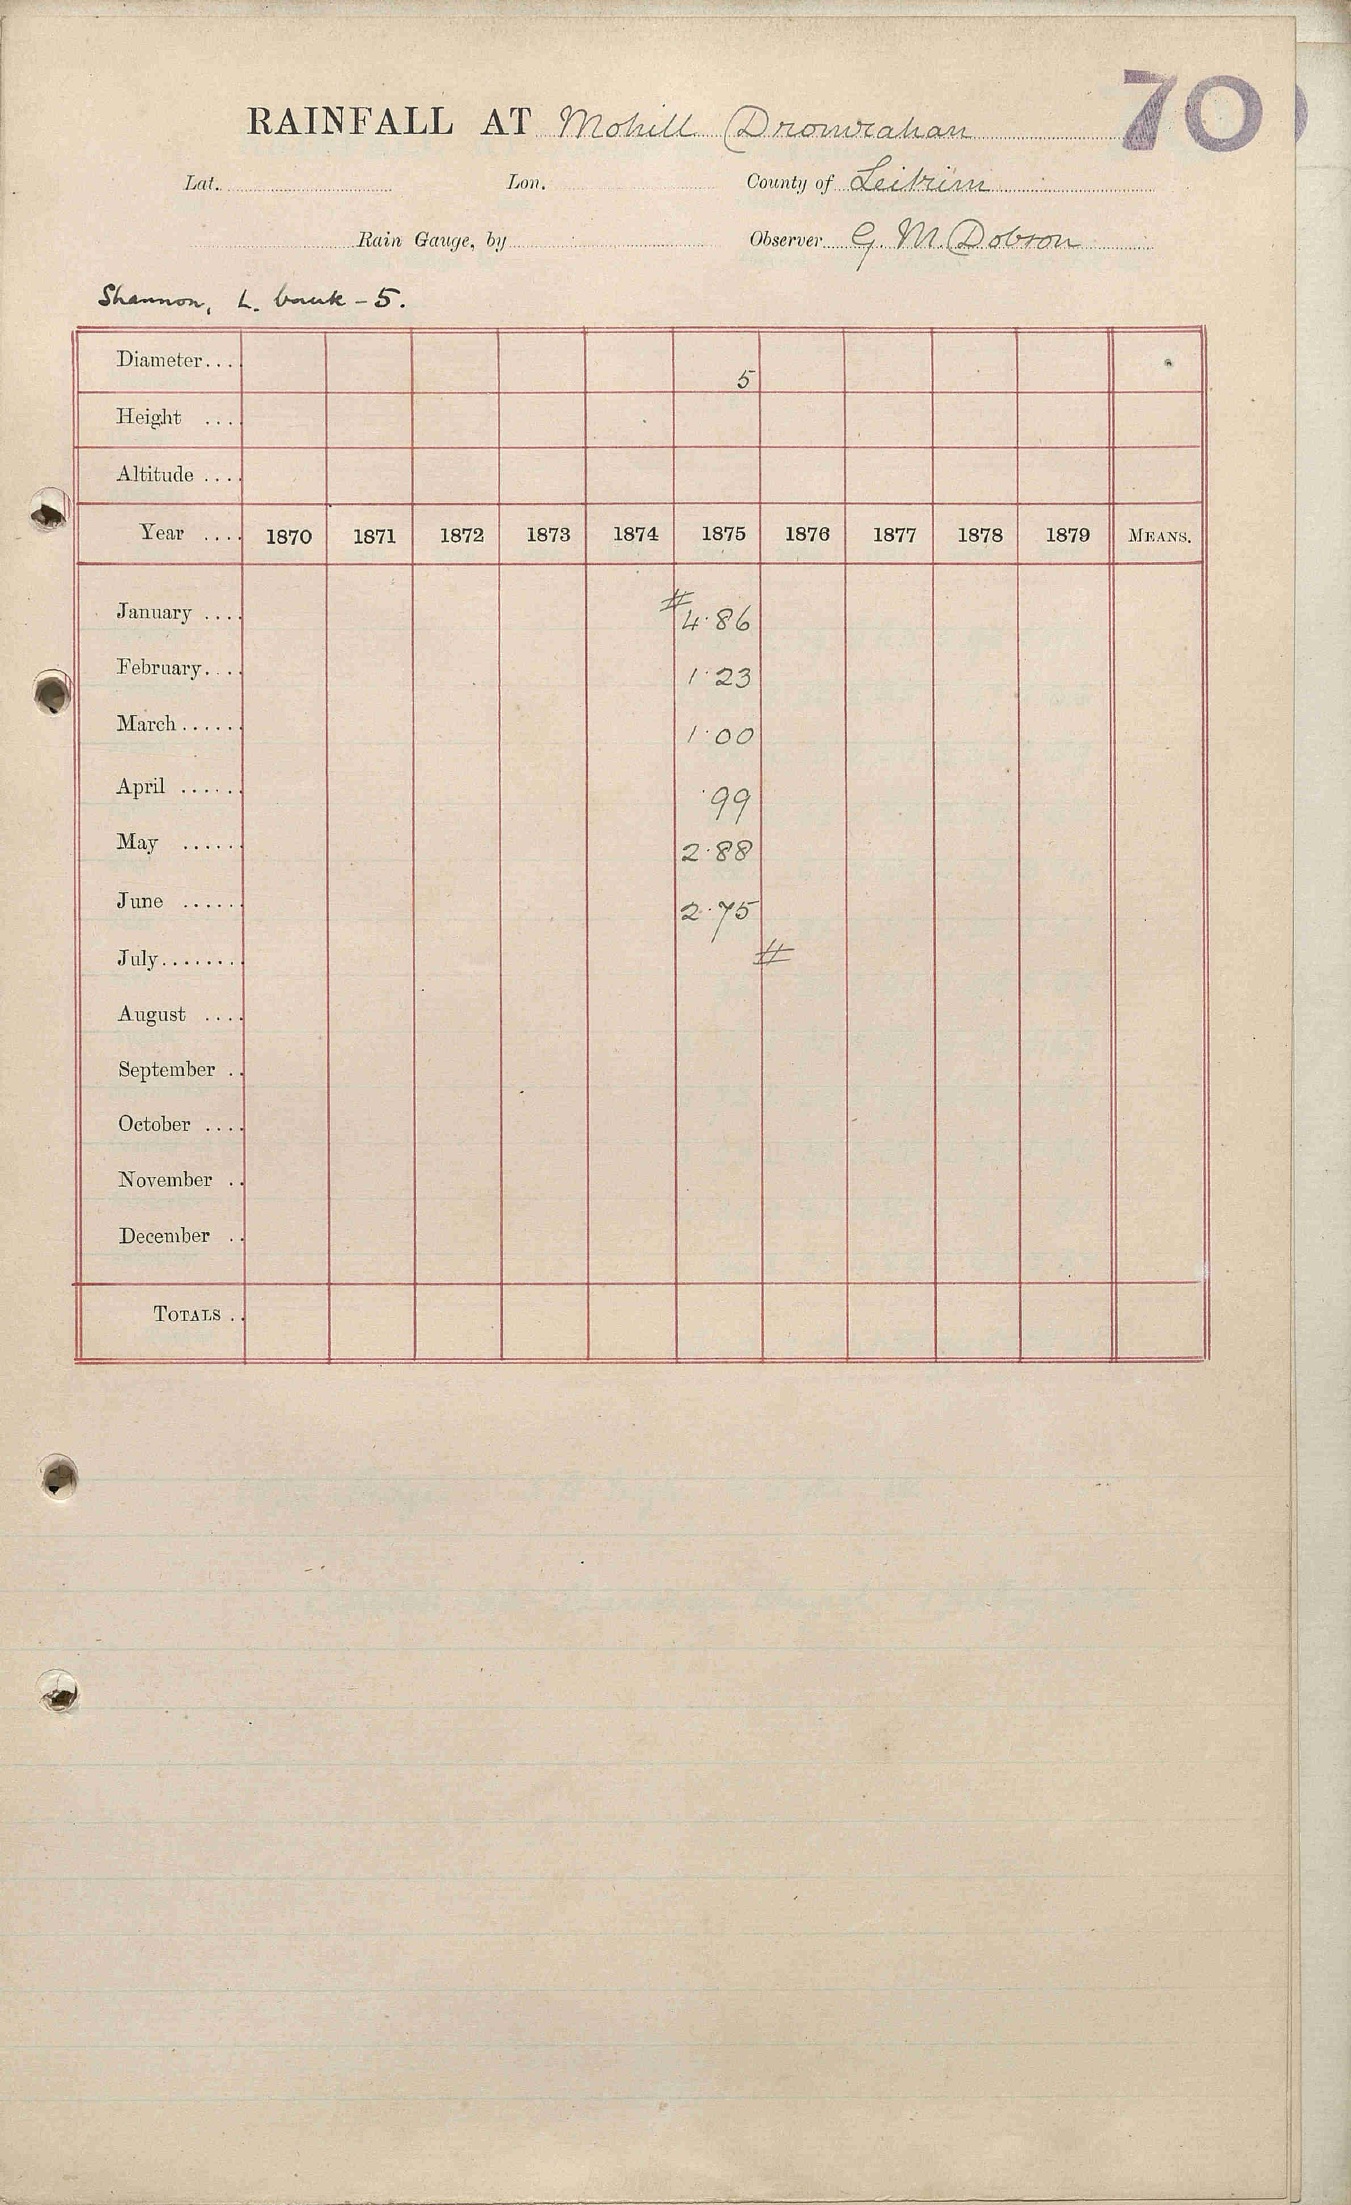 70
RAINFALL AT Mohill Dromrahan
Lat. Lon. County of Leitrim
Rain Gauge, by Observer G. M. Dobson
Shannon, L. bank - 5.
Diameter.... 5
Height ....
Altitude ....
Year .... 1870 1871 1872 1873 1874 1875 1876 1877 1878 1879 MEANS.
January .... # 4·86
February.... 1·23
March...... 1·00
April ...... ·99
May ...... 2·88
June ...... 2·75
July........ #
August ....
September ..
October ....
November ..
December ..
TOTALS ..